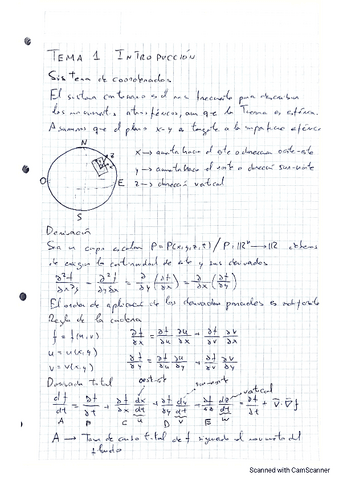 TEMA 1 INTRODUCCIÓN
Sistema de coordenadas
El sistema cartesiano es el mas frecuente para describir
los movimientos atmosféricos, aunque la Tierra es esférica.
Asumimos que el plano x-y es tangente a la superficie esférica
N
O
E
S
x → aumenta hacia el este o dirección oeste-este
y → aumenta hacia el norte o dirección sur-norte
z → dirección vertical
Derivación
Sea un campo escalar P = P(x,y,z,t) / P: ℝ⁴ → ℝ
de exigir la continuidad de este y sus derivadas
∂²f/∂x∂y = ∂²f/∂y∂x = ∂/∂y (∂f/∂x) = ∂/∂x (∂f/∂y)
El orden de aplicación de las derivadas parciales es
Regla de la cadena
f = f(u,v) ∂f/∂x = ∂f/∂u ∂u/∂x + ∂f/∂v ∂v/∂x
u = u(x,y)
v = v(x,y) ∂f/∂y = ∂f/∂u ∂u/∂y + ∂f/∂v ∂v/∂y
Derivada total
oeste-este
sur-norte
vertical
df/dt = ∂f/∂t + ∂f/∂x dx/dt + ∂f/∂y dy/dt + ∂f/∂z dz/dt = ∂f/∂t + v̄ · ∇̄f
A B C u D v E w
A → Tasa de cambio total de f siguiendo el movimiento del
fluido
Scanned with CamScanner